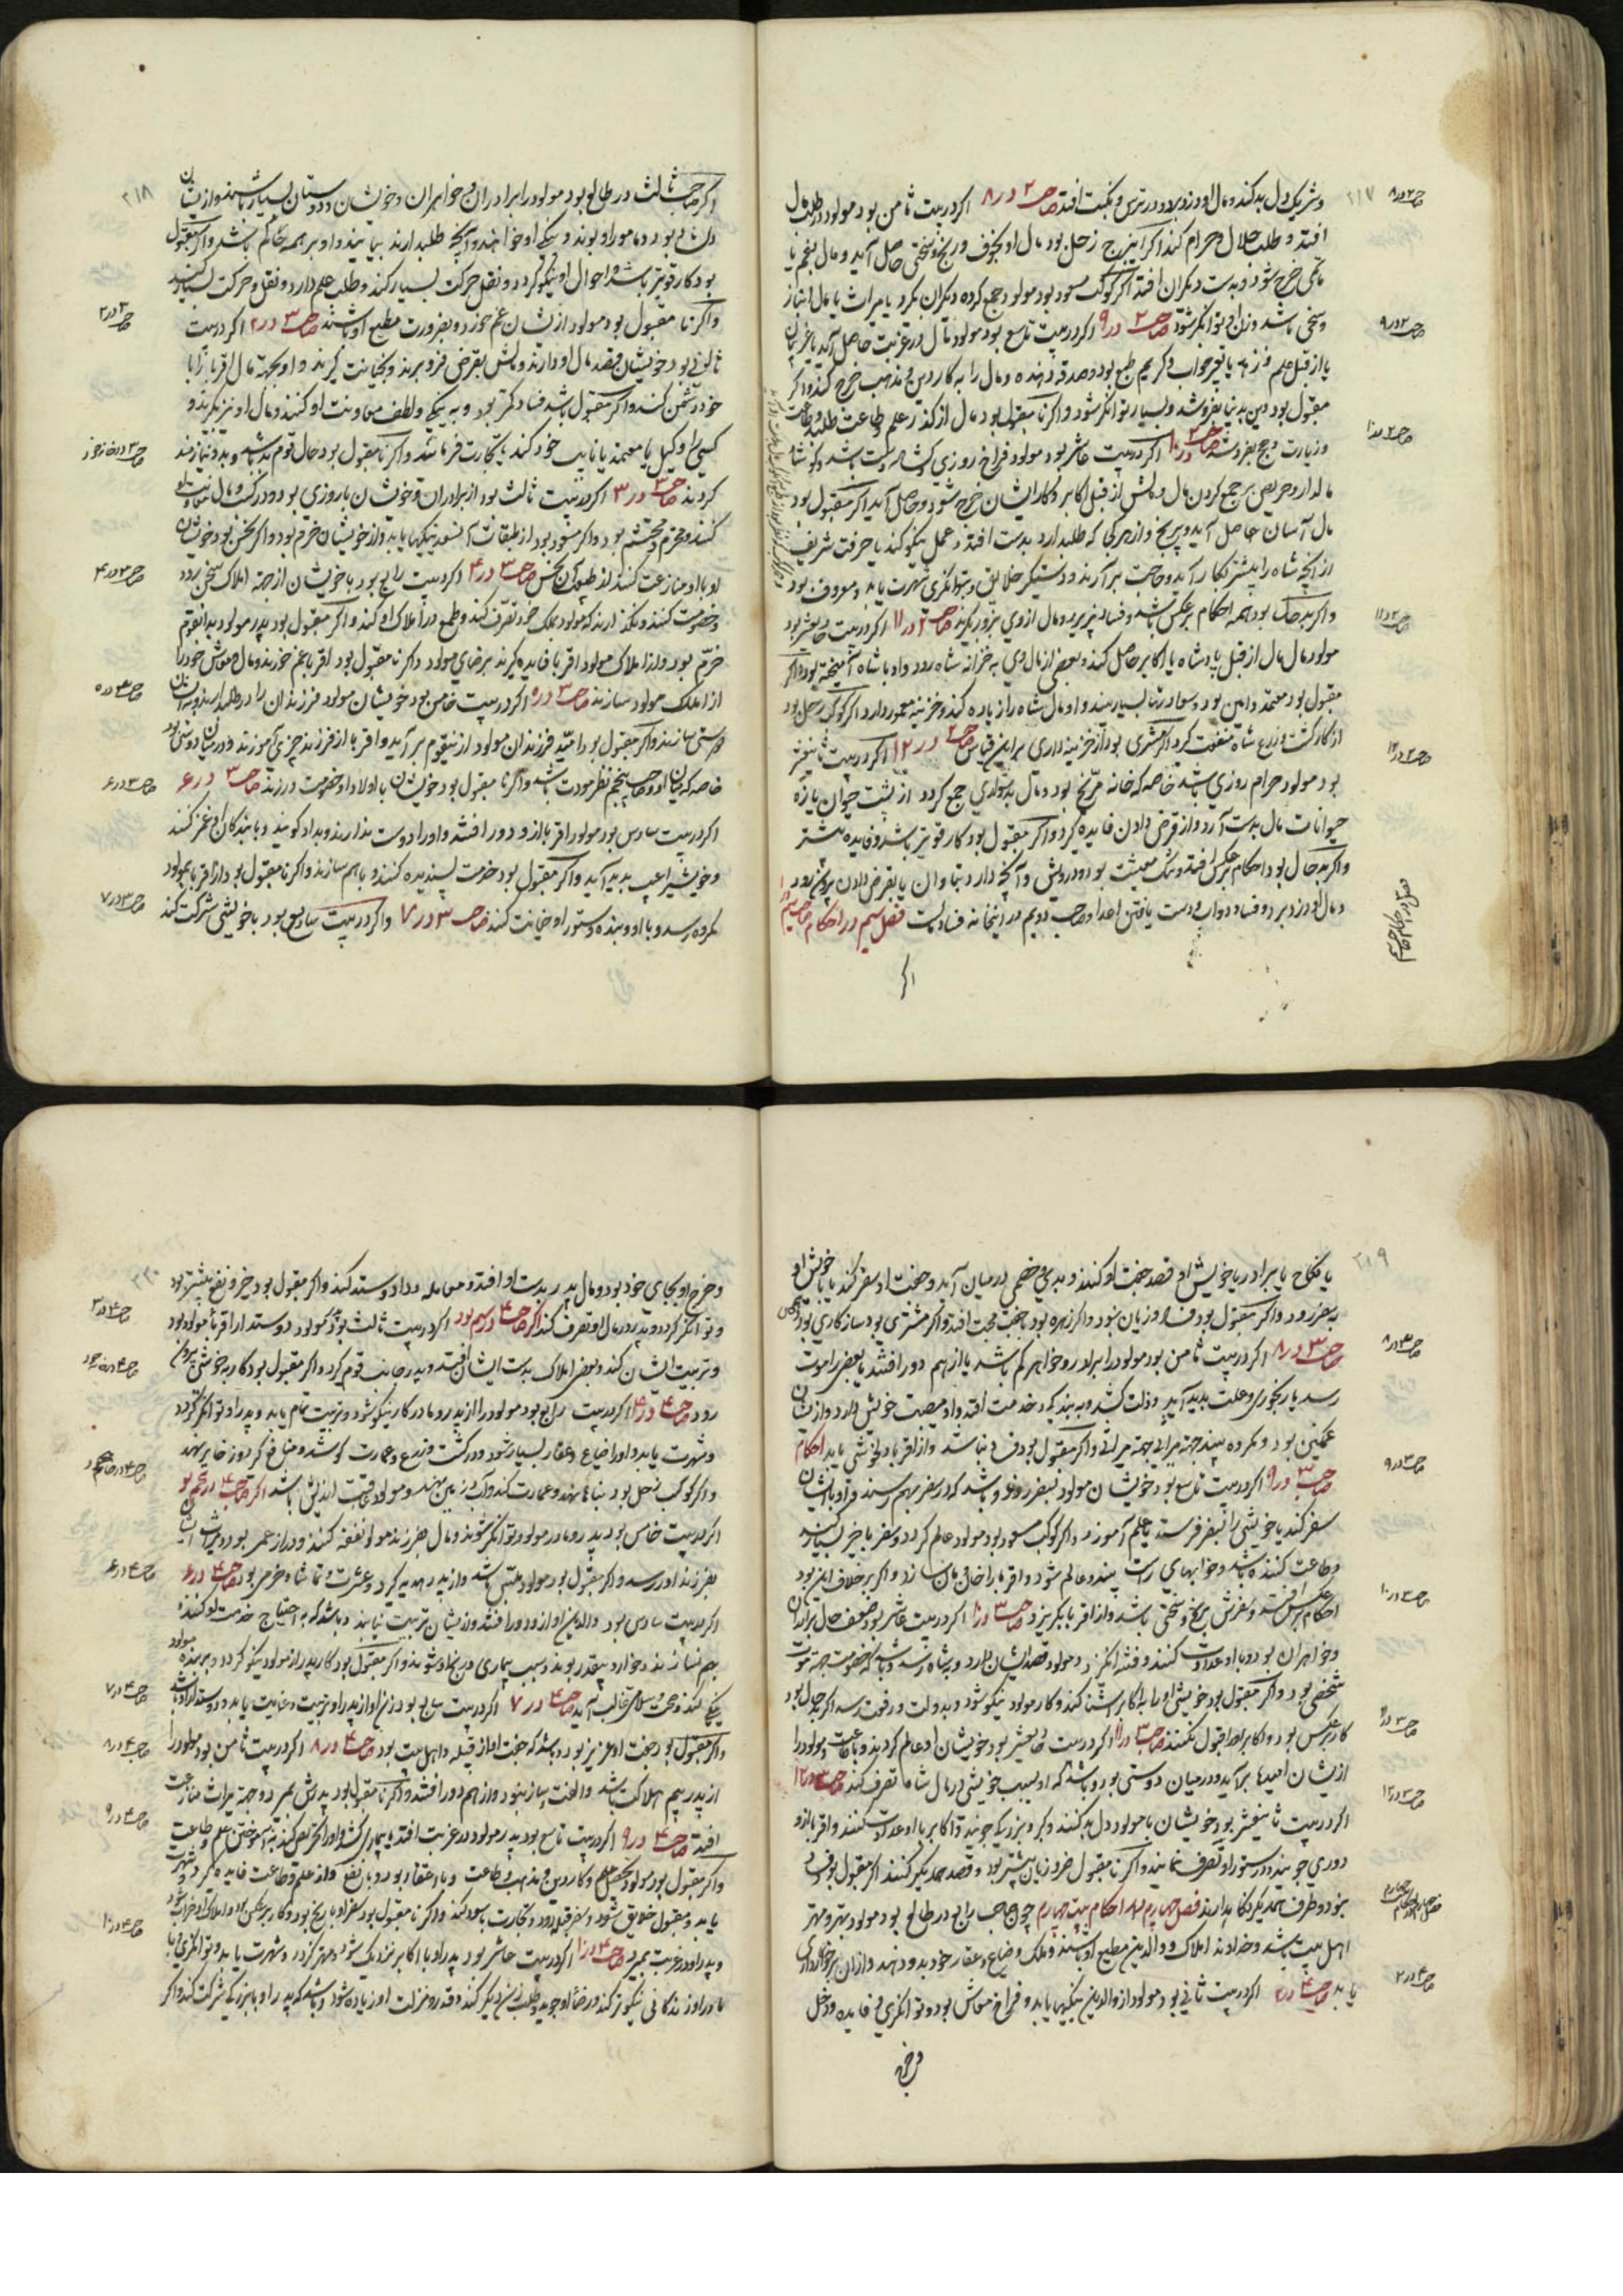 ۲۱۷
و شریک دل بد کند و مال او دزد برد و در ترس و نکبت افتد صاحب ۲ در ۸ اگر در بیت ثامن بود مولود در طلب مال
افتد و طلب حلال و حرام کند اگر این برج زحل بود مال او بخوف و رنج و سختی حاصل آید و مال بغم یا
خرج شود و بدست دیگران افتد اگر کوکب مسعود بود مولود جمع کرده دیگران بگیرد یا میراث یا مال انباز
و توانگر شود صاحب ۲ در ۹ اگر در بیت تاسع بود مولود مال در غربت حاصل آید
یا از قبل علم یا تعبیر خواب و کریم طبع بود و صدقه دهنده و مال را به کار دین و مذهب خرج کند و اگر
مقبول بود دین بدنیا بفروشد و بسیار توانگر شود و اگر نامقبول بود مال از کذر علم و طاعت طلبد
و زیارت و حج بفروشد صاحب ۲ در ۱۰ اگر در بیت عاشر بود مولود فراخ روزی
مالدار و حریص بر جمع کردن مال و مالش از قبل اکابر و کار ایشان خرج شود و حاصل آید اگر مقبول بود
مال آسان حاصل آید و بی رنج و از هر کجا که طلب دارد بدست افتد و عمل نیکو کند یا حرفت شریف
از آنچه شاه را بیشتر بکار آید و حاجت برآرند و دستگیر خلایق و بتوانگری شهرت یابد و معروف بود
و اگر بد حال بود همه احکام بر عکس باشد و فساد پذیرد و مال از وی بزور بگیرند صاحب ۲ در ۱۱ اگر در بیت حادیعشر بود
مولود مال از قبل پادشاه یا اکابر حاصل کند و بعضی از مال وی به خزانه شاه رود و او با شاه آمیخته بود و اگر
مقبول بود معتمد و امین بود و سپارند و او مال شاه را زیاده کند و خزینه معمور دارد اگر کوکب زحل بود
از کار کشت و زرع شاه منفعت گیرد اگر مشتری بود از خزینه داری برین قیاس صاحب ۲ در ۱۲ اگر در بیت ثانیعشر
بود مولود حرام روزی باشد خاصه که خانه مریخ بود و مال بدشواری جمع گردد از پشت حیوان یا زه
حیوانات مال بدست آرد و از قرض دادن فایده گیرد و اگر مقبول بود کار قویتر باشد و فایده بیشتر
و اگر بد حال بود احکام بر عکس افتد و تنگ معیشت بود و درویش و آنچه دارد بتاوان یا بقرض دادن بیرون رود
و مال او دزد برد و فساد دواب و دست یافتن اعدا و صاحب دویم در اینخانه فساد مالست فصل سیم در احکام صاحب سیم
اگر
صاحب ۲ در ۸
صاحب ۲ در ۹
صاحب ۲ در ۱۰
صاحب ۲ در ۱۱
صاحب ۲ در ۱۲
فصل در احکام صاحب سیم
۲۱۸
اگر صاحب ثالث در طالع بود مولود را برادران و خواهران و خویشان و دوستان بسیار باشند و از ایشان
دل شاد بود و مامور او بوند و نیکی او خواهند و آنچه طلب دارند بیابند و او بر همه حاکم باشد و اگر مقبول
بود کار قویتر باشد و احوال او نیکو گردد و نقل و حرکت بسیار کند و طلب علم دارد و نقل و حرکت بسیار کند
و اگر نامقبول بود مولود از ایشان غم خورد و بضرورت مطیع او باشند صاحب ۳ در ۲ اگر در بیت
ثانی بود خویشان قصد مال او دارند و مالش بقرض فرو برند و بخیانت گیرند و او بجهت مال اقربا را با
خود دشمن کند و اگر مقبول باشد فساد کمتر بود و به نیکی و لطف معاونت او کنند و مال او نیز ببرند و
کسی را وکیل یا معتمد یا نایب خود کند یا بتجارت فرماید و اگر نامقبول بود حال قوم بد باشد و بدو نیازمند
گردند صاحب ۳ در ۳ اگر در بیت ثالث بود از برادران و خویشان با روزی بود و در کسب و مال معاونت او
کنند و محترم و محتشم بود و اگر مسعود بود از طبقات نیکیها یابد و از خویشان خرم بود و اگر نحس بود خویشان
او با او منازعت کنند صاحب ۳ در ۴ اگر در بیت رابع بود با خویشان از جهت املاک سخن رود
و خصومت کنند و نگذارند که مولود بملک خود تصرف کند و طمع در املاک او کنند و اگر مقبول بود پدر مولود بدانقوم
خرم بود و از املاک مولود اقربا فایده گیرند برضای مولود و اگر نامقبول بود اقربا غم خورند و مال و معاش خود را
از املاک مولود سازند صاحب ۳ در ۵ اگر در بیت خامس بود خویشان مولود فرزندان را
دوستی سازند و اگر مقبول بود امید فرزندان مولود ازین قوم برآید و اقربا از فرزند چیزی آموزند و در میان دوستی بود
خاصه که میان او و صاحب پنجم نظر مودت باشد و اگر نامقبول بود خویشان با اولاد او خصومت ورزند صاحب ۳ در ۶
اگر در بیت سادس بود مولود را اقربا از و دور افتند و او را دوست ندارند و بد او گویند و با بندگان او غمز کنند
و خویشی را عیب پدید آید و اگر مقبول بود خدمت پسندیده کنند و با هم سازند و اگر نامقبول بود از اقربا بمولود
مکروه رسد و با او و بنده و ستور او خیانت کنند صاحب ۳ در ۷ و اگر در بیت سابع بود با خویشی شرکت کند
صاحب ۳ در ۲
صاحب ۳ در خانه خود
صاحب ۳ در ۴
صاحب ۳ در ۵
صاحب ۳ در ۶
صاحب ۳ در ۷
۲۱۹
یا نکاح یا برادر یا خویش او قصد جفت او کنند و بدی و خصمی در میان آید و جفت او سفر کند یا با خویش او
بسفر رود و اگر مقبول بود فساد و زیان نبود و اگر زهره بود با جفت محبت افتد و اگر مشتری بود سازگاری بود
صاحب ۳ در ۸ اگر در بیت ثامن بود مولود را برادر و خواهر کم باشد یا از هم دور افتند یا بعضی را موت
رسد یا رنجوری و علت پدید آید و ذلت کشد و به بندگی و خدمت افتد و او مصیبت خویش دارد و از ایشان
غمگین بود و مکروه بیند جهة میراثی و اگر مقبول بود فساد نباشد و از اقربا و خویشی یابد احکام
صاحب ۳ در ۹ اگر در بیت تاسع بود خویشان مولود بسفر روند و باشد که در سفر بهم رسند و او با ایشان
سفر کند یا خویشی را بسفر فرستد یا علم آموزد و اگر کوکب مسعود بود مولود عالم گردد و سفر با خیر بسیار کند
و طاعت کننده باشد و خوابهای راست بیند و عالم شود و اقربا را خان و مان سازد و اگر بر خلاف این بود
احکام بر عکس افتد و سفرش برنج و سختی باشد و از اقربا بگریزد صاحب ۳ در ۱۰ اگر در بیت عاشر بود ضعف حال برادران
و خواهران بود و با او عداوت کنند و فتنه انگیزند و مولود قصد ایشان دارد
شخصی بود و اگر مقبول بود خویشی او را به اکابر آشنا کند و کار مولود نیکو شود و بدولت و رفعت رسد اگر بد حال بود
کار بر عکس بود و اکابر او را قبول نکنند صاحب ۳ در ۱۱ اگر در بیت حادیعشر بود خویشان او عالم گردند و با طاعت و مولود را
از ایشان امیدها برآید و در میان دوستی بود و باشد که او بسبب خویشی در مال شاه تصرف کند صاحب ۳ در ۱۲
اگر در بیت ثانیعشر بود خویشان با مولود دل بد کنند و کبر و بزرگی جویند و اکابر با او عداوت کنند و اقربا از و
دوری جویند و در ستور او تصرف نمایند و اگر نامقبول ضرر و زیان بیشتر بود و قصد همدیگر کنند اگر مقبول بود فساد
نبود و طرف همدیگر نگاه دارند فصل چهارم در احکام بیت چهارم چون صاحب رابع در طالع بود مولود بهتر و مهتر
اهل بیت باشد و خداوند املاک و والدین مطیع او باشند و ملک و ضیاع و عقار خود بدو دهند و از ان برخورداری
یابد صاحب ۴ در ۲ اگر در بیت ثانی بود مولود از والدین نیکیها یابد و فراخ معاش بود و توانگری و فایده و دخل
و خرج
صاحب ۳ در ۸
صاحب ۳ در ۹
صاحب ۳ در ۱۰
صاحب ۳ در ۱۱
صاحب ۳ در ۱۲
فصل چهارم در احکام
صاحب ۴ در ۲
۲۲۰
و خرج او بجای خود بود و مال پدر بدست او افتد و معامله و داد و ستد کند و اگر مقبول بود خیر و نفع بیشتر بود
و توانگر گردد و پدر در مال او تصرف کند اگر صاحب ۴ در سیم بود اگر در بیت ثالث بود مولود دوستدار اقربا بود
و تربیت ایشان کند و بعضی املاک بدست ایشان افتد و پدر جانب قوم گیرد و اگر مقبول بود کار بخوشی بیرون
رود صاحب ۴ در ۴ اگر در بیت رابع بود مولود را از پدر و مادر کار نیکو شود و تربیت تمام یابد و پدر او توانگر گردد
و شهرت یابد و او را ضیاع و عقار بسیار شود و در کشت و زرع و عمارت کوشد و منافع گیرد و ذخایر نهد
و اگر کوکب زحل بود بناها نهد و عمارت کند و آب و زمین نهد و مولود عاقبت اندیش باشد اگر صاحب ۴ در پنجم بود
اگر در بیت خامس بود پدر و مادر مولود توانگر شوند و مال بفرزند مولود نفقه کنند و دراز عمر بود و میراث ایشان
بفرزند او رسد و اگر مقبول بود مولود باشد و از پدر هدیه گیرد و عشرت و تماشا و خرمی بود صاحب ۴ در ۶
اگر در بیت سادس بود والدین او از و دور افتند و از ایشان تربیت نیابد و باشد که به احتیاج خدمت او کنند
بهم نسازند و خوار و بیقدر بوند و سبب بیماری و رنج او شوند و اگر مقبول بود کار پدر از مولود نیکو گردد و بر بنده
نیکی کند صاحب ۴ در ۷ اگر در بیت سابع بود زن او از پدر او تربیت و عنایت یابد و دوستدار او باشد
و اگر مقبول بود جفت او عزیز بود و باشد که جفت او از قبیله و اهل بیت بود صاحب ۴ در ۸ اگر در بیت ثامن بود مولود را
از پدر بیم هلاکت باشد و الفت و ساز نبود و از هم دور افتند و اگر نامقبول بود پدرش بمیرد و جهة میراث منازعت
افتد صاحب ۴ در ۹ اگر در بیت تاسع بود پدر مولود در غربت افتد یا بیماری کشد و او را تحریص کند به آموختن علم و طاعت
و اگر مقبول بود مولود تحصیل علم و کار دین و مذهب و طاعت و با اعتقاد بود و با نفع و از علم و طاعت فایده گیرد و شهرت
یابد و مقبول خلایق شود و بسفر قبله رود و تجارت سود کند و اگر نامقبول بود سفر او با رنج بود و کار بر عکس بود و املاک او خراب شود
و پدر او در غربت بمیرد صاحب ۴ در ۱۰ اگر در بیت عاشر بود پدر او با اکابر نزدیک شود و مهتر گردد و شهرت یابد و توانگری و با
مادر او زندگانی نیکو کند و رضای او جوید و طلب زن دیگر کند و قدر و منزلت او زیاده شود و باشد که پدر او با بزرگی شرکت کند و اگر
صاحب ۴ در ۳
صاحب ۴ در خانه خود
صاحب ۴ در پنجم
صاحب ۴ در ۶
صاحب ۴ در ۷
صاحب ۴ در ۸
صاحب ۴ در ۹
صاحب ۴ در ۱۰